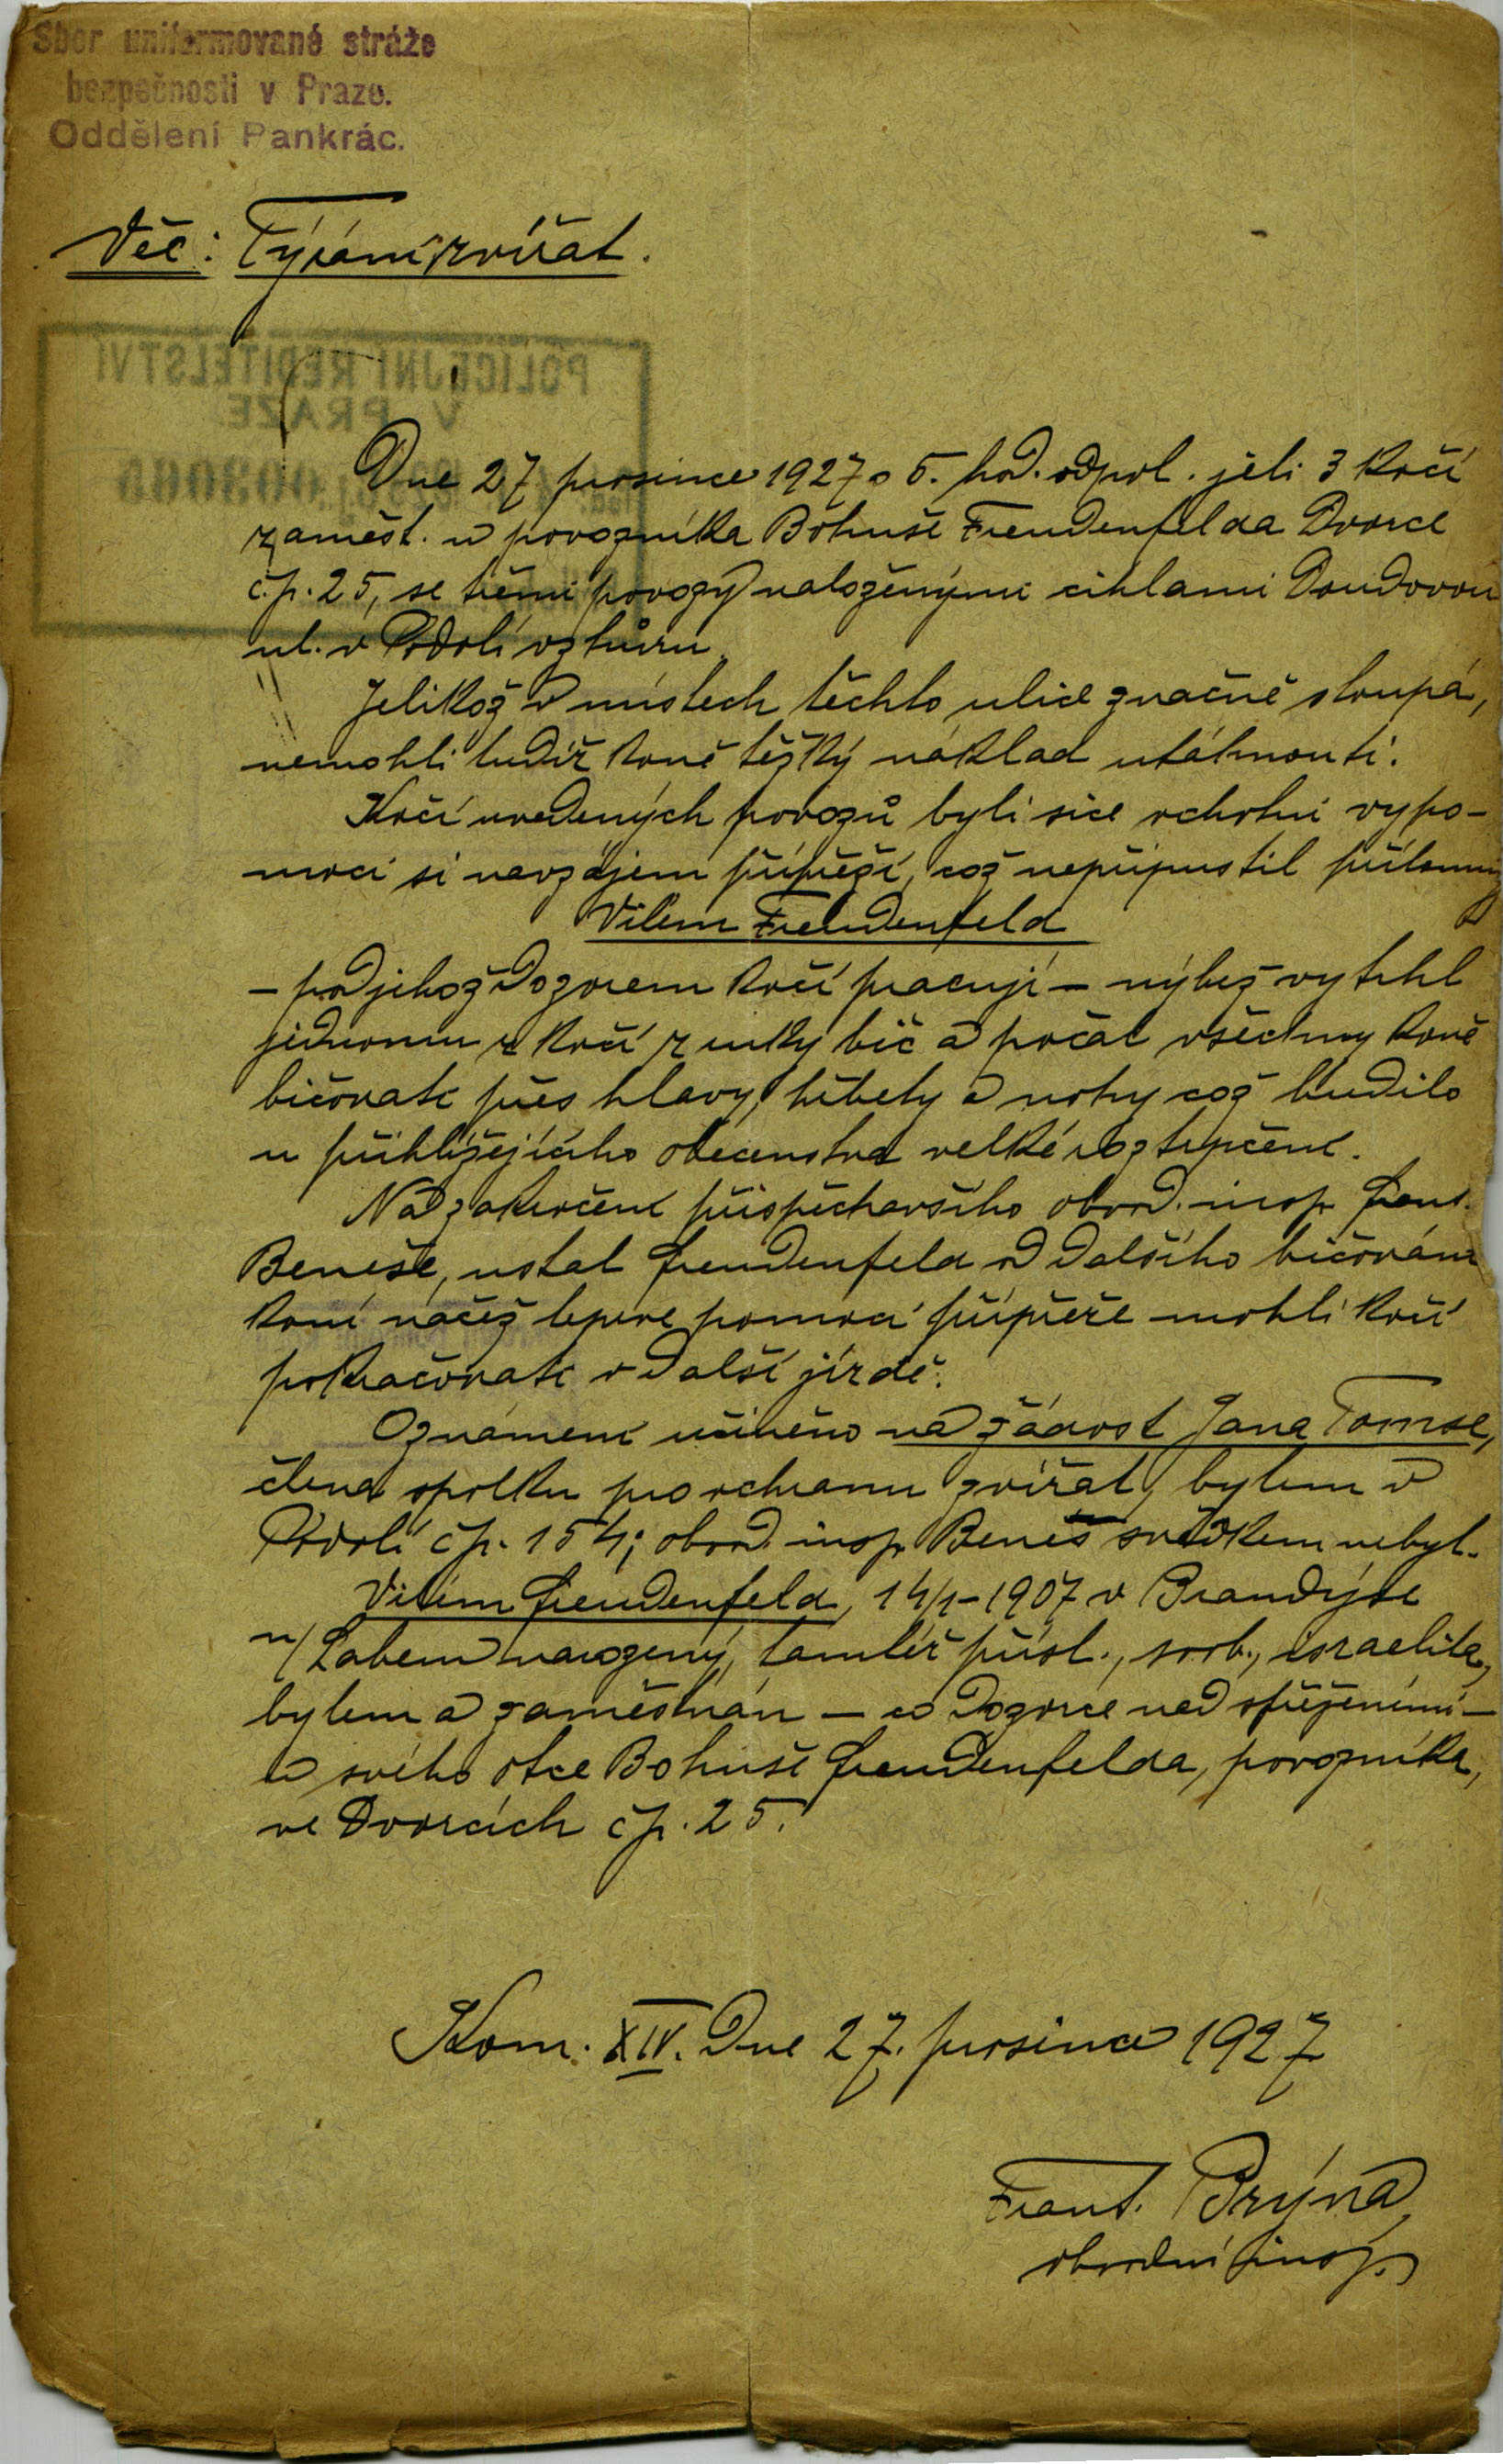 Sbor uniformované stráže
bezpečnosti v Praze.
Oddělení Pankrác.
Věc: Týrání zvířat.
POLICEJNÍ ŘEDITELSTVÍ
V PRAZE
Dne 27 prosince 1927 o 5. hod. odpol. jeli 3 kočí
zaměst. u povozníka Bohuše Freudenfelda Dvorce
č.p. 25, se třemi povozy naloženými cihlami Doudovou
ul. v Podolí vzhůru.
Jelikož v místech těchto ulice značně stoupá,
nemohli tudíž koně těžký náklad utáhnouti.
Kočí uvedených povozů byli sice ochotni vypo-
moci si navzájem přípřeží, což nepřipustil přítomný
Vilém Freudenfeld
– pod jehož dozorem kočí pracují – nýbrž vytrhl
jednomu z kočí z ruky bič a počal všechny koně
bičovati přes hlavy, hřbety a nohy což budilo
u přihlížejícího obecenstva velké roztrpčení.
Na zakročení přispěchavšího obvod. insp. Frant.
Beneše, ustal Freudenfeld od dalšího bičování
koní načež teprve pomocí přípřeže mohli kočí
pokračovati v další jízdě.
Oznámení učiněno na žádost Jana Tomse,
člena spolku pro ochranu zvířat, bytem v
Podolí čp. 154; obvod. insp. Beneš svědkem nebyl.
Vilém Freudenfeld, 14/1-1907 v Brandýse
n/Labem narozený, tamtéž přísl., svob., israelita,
bytem a zaměstnán – co dozorce nad spřeženími –
u svého otce Bohuše Freudenfelda, povozníka,
ve Dvorcích čp. 25.
Kom. XIV. Dne 27. prosince 1927
Frant. Brýna
obvodní insp.